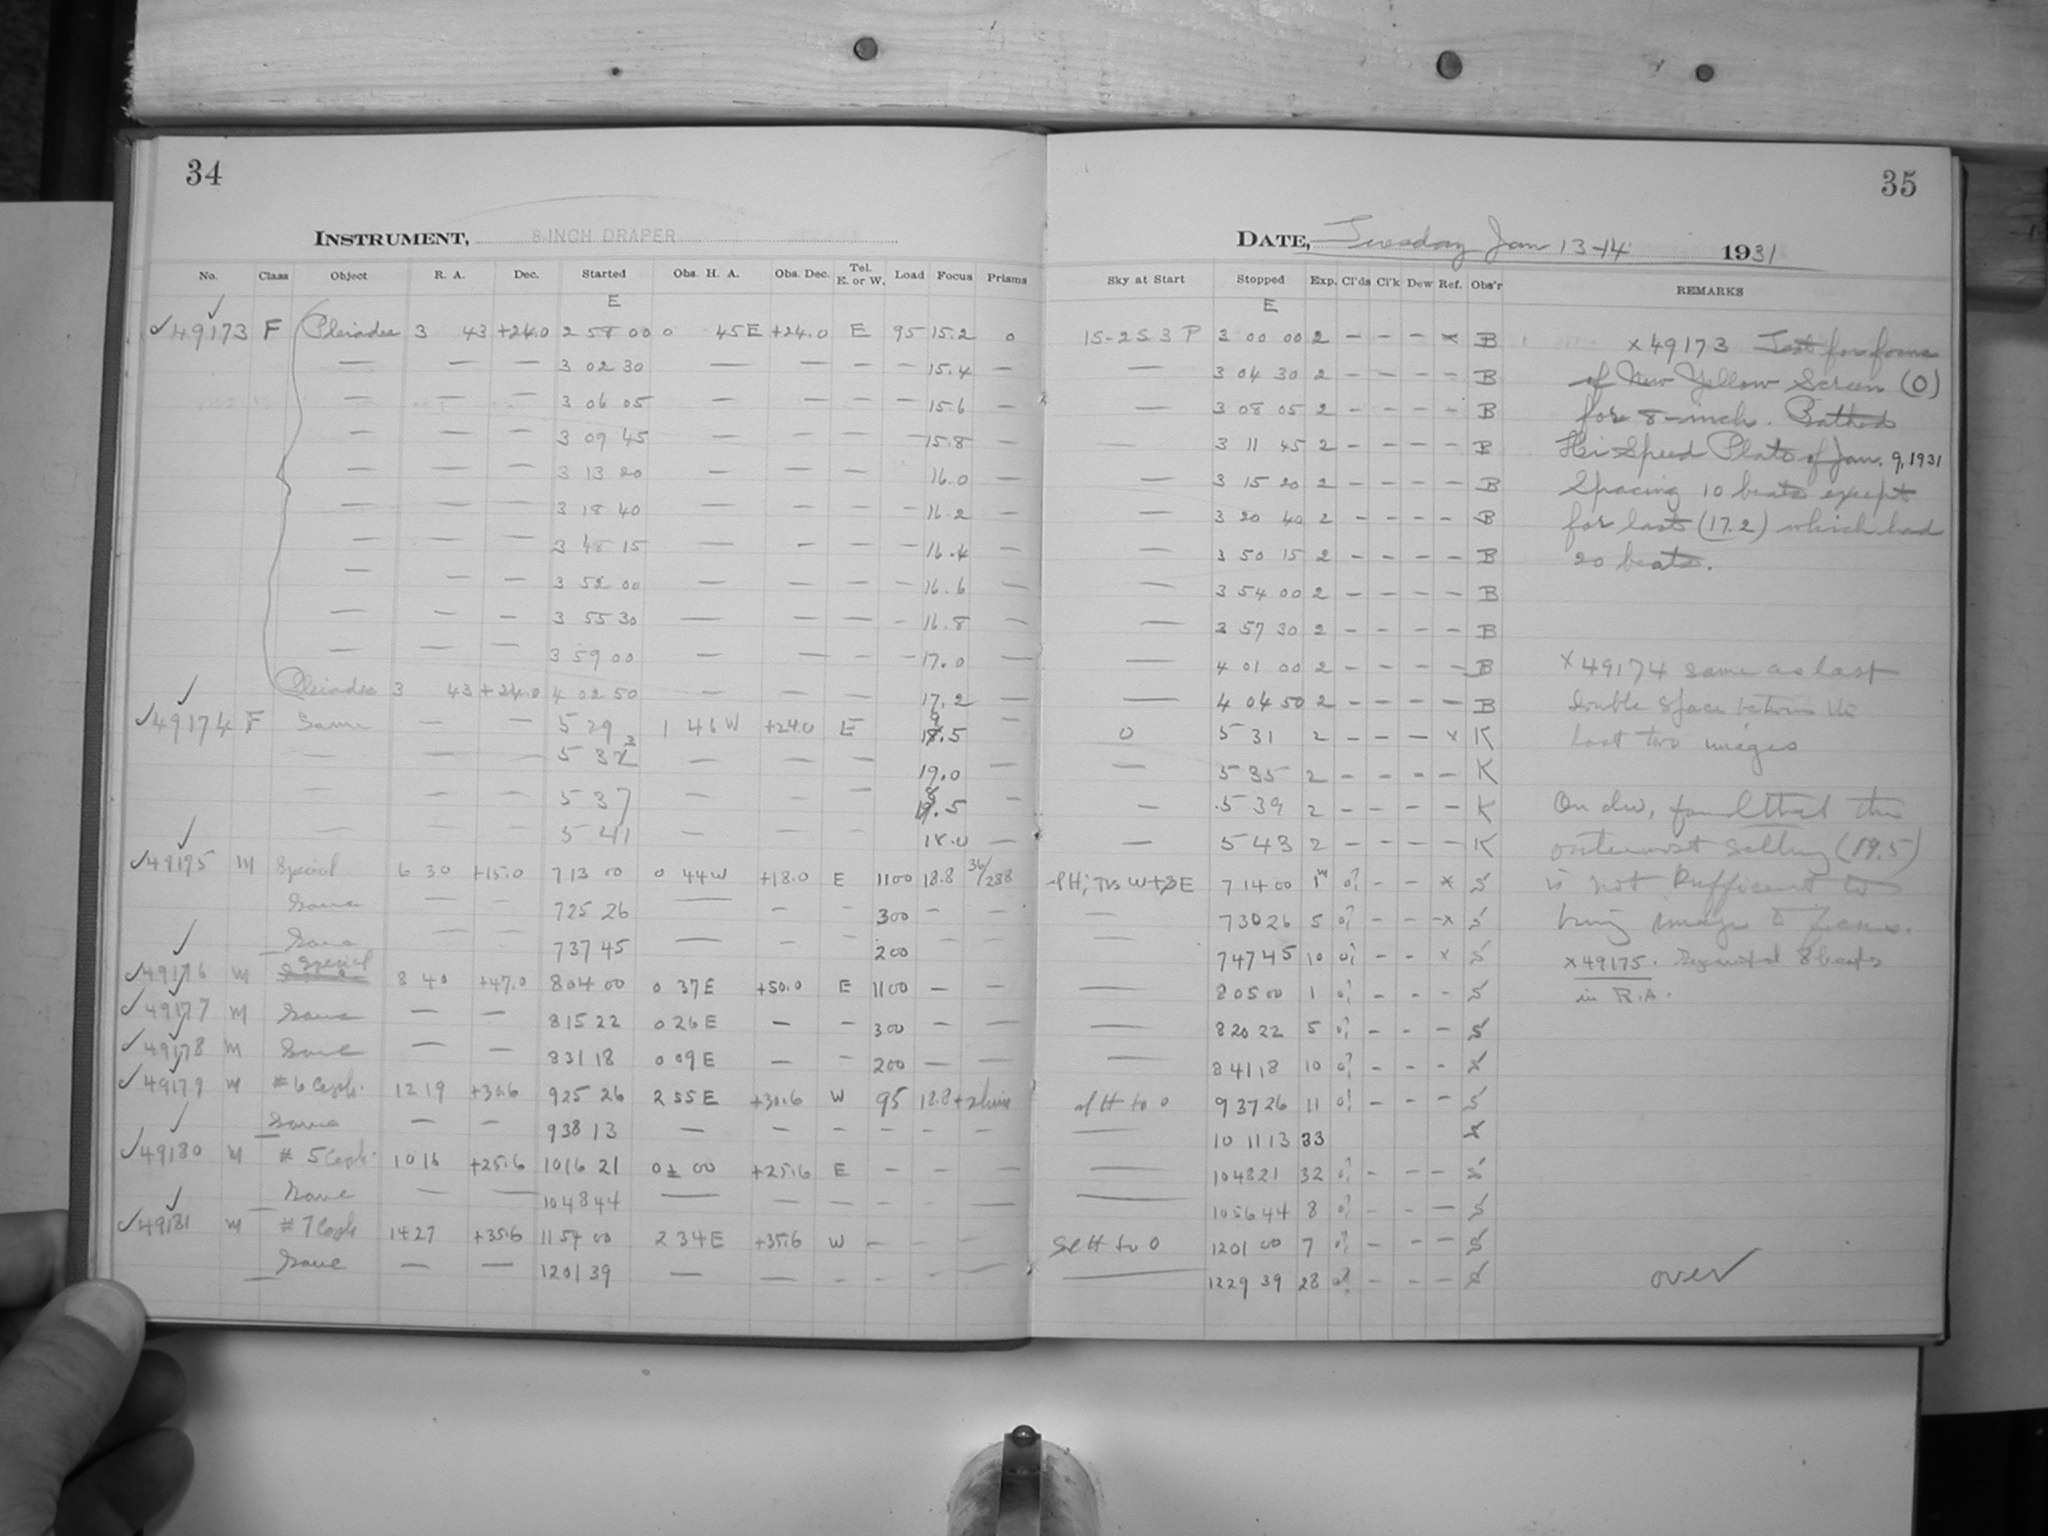 34
INSTRUMENT, 8 INCH DRAPER
No. Class Object R. A. Dec. Started Obs. H. A. Obs. Dec. Tel. E. or W. Load Focus Prisms
E
✓49173 F Pleiades 3 43 +24.0 2 58 00 0 45 E +24.0 E 95 15.2 0
— — — 3 02 30 — — — — 15.4 —
— — — 3 06 05 — — — — 15.6 —
— — — 3 09 45 — — — — 15.8 —
— — — 3 13 20 — — — — 16.0 —
— — — 3 18 40 — — — — 16.2 —
— — — 3 48 15 — — — — 16.4 —
— — — 3 52 00 — — — — 16.6 —
— — — 3 55 30 — — — — 16.8 —
— — — 3 59 00 — — — — 17.0 —
Pleiades 3 43 +24.0 4 02 50 — — — 17.2 —
✓49174 F Same — — 5 29 1 46 W +24.0 E 19.5 —
— — 5 33 — — — 19.0 —
— — — 5 37 — — — 18.5 —
— — — 5 41 — — — 18.0 —
✓49175 M Special 6 30 +15.0 7 13 00 0 44 W +18.0 E 1100 18.8 36/288
Same — — 7 25 26 — — — 300 — —
Same — — 7 37 45 — — — 200 — —
✓49176 M Special 8 40 +47.0 8 04 00 0 37 E +50.0 E 1100 — —
✓49177 M Same — — 8 15 22 0 26 E — — 300 — —
✓49178 M Same — — 8 31 18 0 09 E — — 200 — —
✓49179 M #6 Ceph. 12 19 +30.6 9 25 26 2 55 E +30.6 W 95 18.8
Same — — 9 38 13 — — — — — —
✓49180 M #5 Ceph. 10 16 +25.6 10 16 21 00 +25.6 E — — —
Same — — 10 48 44 — — — — — —
✓49181 M #7 Ceph 14 27 +35.6 11 54 00 2 34 E +35.6 W — — —
Same — — 12 01 39 — — — — — —
35
DATE, Tuesday Jan 13-14 1931
Sky at Start Stopped Exp. Cl'ds Cl'k Dew Ref. Obs'r REMARKS
E
1S-2S 3 P 3 00 00 2 — — — × B
— 3 04 30 2 — — — — B
— 3 08 05 2 — — — — B
— 3 11 45 2 — — — — B
— 3 15 20 2 — — — — B
— 3 20 40 2 — — — — B
— 3 50 15 2 — — — — B
— 3 54 00 2 — — — — B
— 3 57 30 2 — — — — B
— 4 01 00 2 — — — — B
— 4 04 50 2 — — — — B
0 5 31 2 — — — × K
— 5 35 2 — — — — K
— 5 39 2 — — — — K
— 5 43 2 — — — — K
7 14 00 1m — — × S
— 7 30 26 5 — — × S
— 7 47 45 10 — — × S
— 8 05 00 1 — — — S
— 8 20 22 5 — — — S
— 8 41 18 10 — — — S
H to 0 9 37 26 11 — — — S
— 10 11 13 33 S
— 10 48 21 32 — — — S
— 10 56 44 8 — — — S
H to 0 12 01 00 7 — — — S
— 12 29 39 28 — — — S
×49173 Test for focus
of New Yellow Screen (0)
for 8-inch. Bathed
Hi Speed Plate of Jan. 9, 1931
Spacing 10 beats except
for last (17.2) which had
20 beats.
×49174 same as last
double space between the
last two images
On dev, found that the
outermost setting (19.5)
is not sufficient to
bring image to focus.
×49175. 8 beats
in R.A.
over ✓